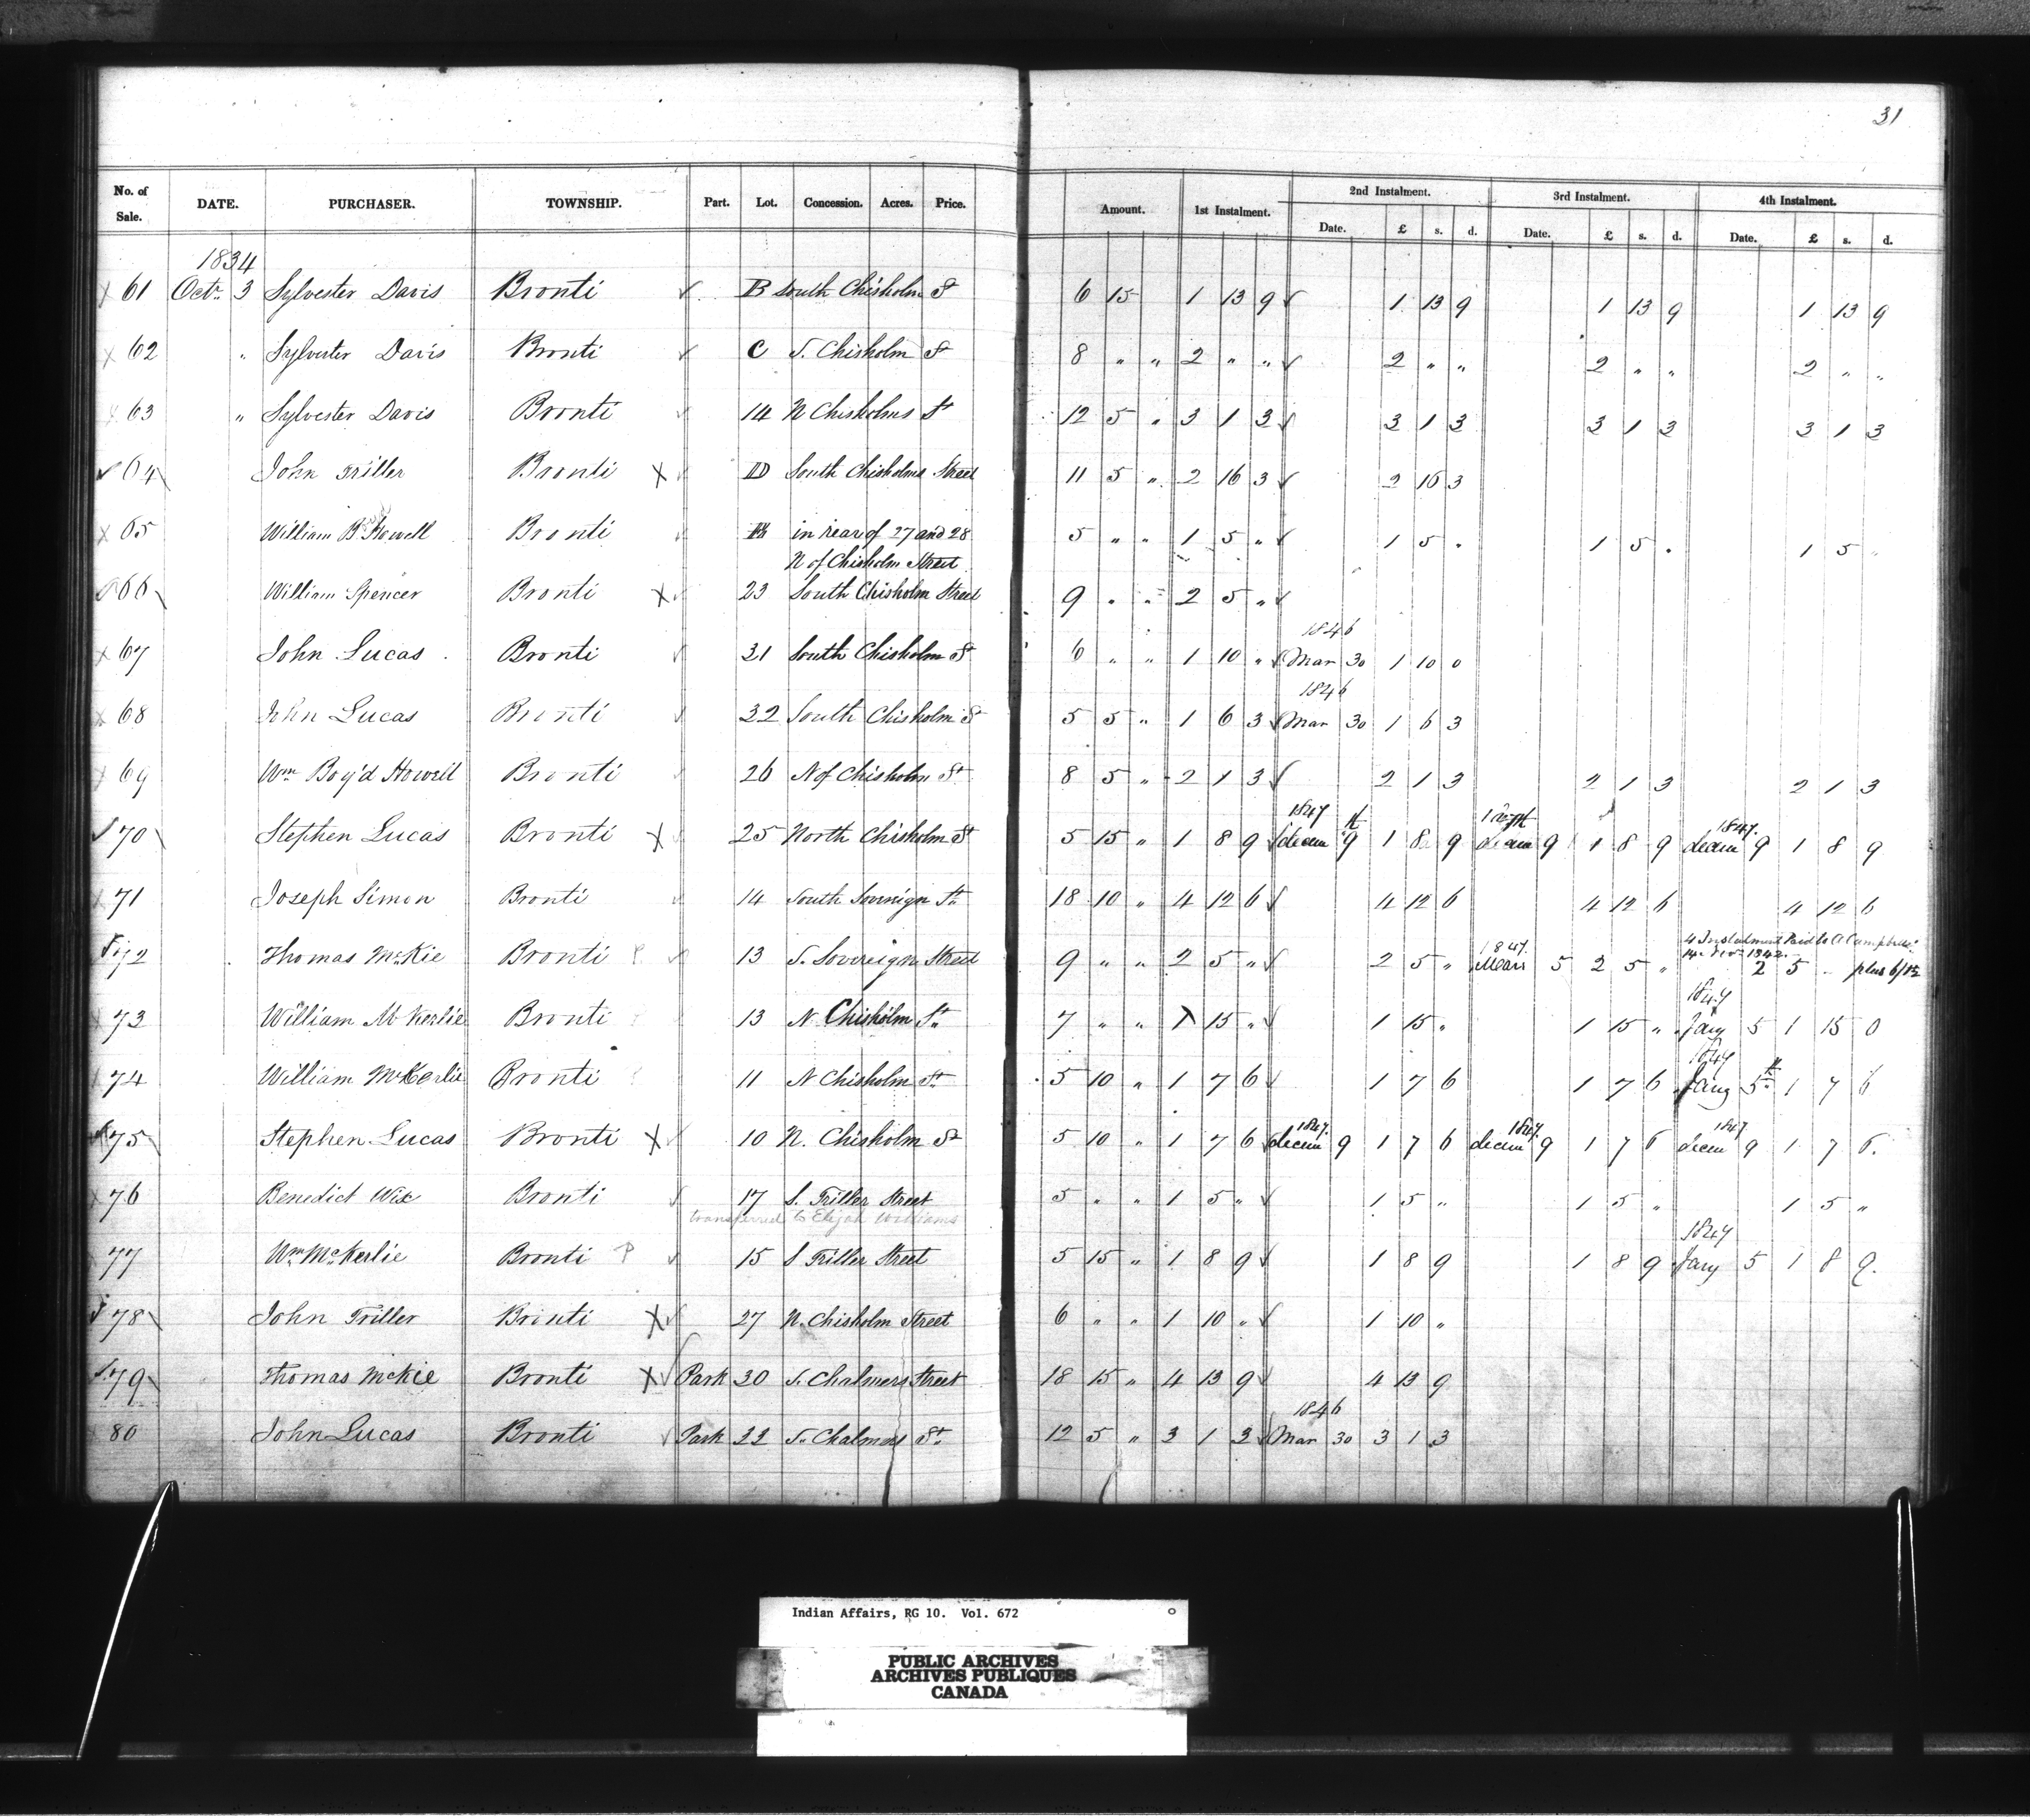 31
No. of Sale. DATE. PURCHASER. TOWNSHIP. Part. Lot. Concession. Acres. Price. Amount. 1st Instalment. 2nd Instalment. 3rd Instalment. 4th Instalment.
Date. £ s. d. Date. £ s. d. Date. £ s. d.
1834
x 61 Octr. 3 Sylvester Davis Bronti ✓ B South Chisholm St 6 15 1 13 9 ✓ 1 13 9 1 13 9 1 13 9
x 62 " Sylvester Davis Bronti ✓ C S. Chisholm St 8 " " 2 " " ✓ 2 " " 2 " " 2 " "
63 " Sylvester Davis Bronti ✓ 14 N Chisholms St 12 5 " 3 1 3 ✓ 3 1 3 3 1 3 3 1 3
✓ 64 John Triller Bronti X ✓ D South Chisholms Street 11 5 " 2 16 3 ✓ 2 16 3
x 65 William B. Howell Bronti ✓ in rear of 27 and 28 5 " " 1 5 " ✓ 1 5 " 1 5 " 1 5 "
N of Chisholm Street
66 William Spencer Bronti X ✓ 23 South Chisholm Street 9 " " 2 5 " ✓
1846
x 67 John Lucas Bronti ✓ 31 South Chisholm St 6 " " 1 10 " ✓ Mar 30 1 10 0
1846
x 68 John Lucas Bronti ✓ 32 South Chisholm St 5 5 " 1 6 3 ✓ Mar 30 1 6 3
x 69 Wm Boy'd Howell Bronti ✓ 26 N of Chisholm St 8 5 " 2 1 3 ✓ 2 1 3 2 1 3 2 1 3
1847 1847.
✓ 70 Stephen Lucas Bronti X 25 North Chisholm St 5 15 " 1 8 9 decem 9th 1 8 9 decem 9 1 8 9 decem 9 1 8 9
x 71 Joseph Simon Bronti ✓ 14 South Sovereign St. 18 10 " 4 12 6 ✓ 4 12 6 4 12 6 4 12 6
1847. 4 Instalment Paid to A Campbell
72 Thomas McKie Bronti P ✓ 13 S. Sovereign Street 9 " " 2 5 " ✓ 2 5 " Mars 5 2 5 " 2 5 plus 6/10
1847
x 73 William McKerlie Bronti 13 N Chisholm St. 7 " " 1 15 " ✓ 1 15 " 1 15 " Jany 5 1 15 0
1847
74 William McKerlie Bronti 11 N Chisholm St. 5 10 " 1 7 6 ✓ 1 7 6 1 7 6 Jany 5th 1 7 6
1847. 1847. 1847
75 Stephen Lucas Bronti X ✓ 10 N. Chisholm St 5 10 " 1 7 6 ✓ decem 9 1 7 6 decem 9 1 7 6 decem 9 1 7 6.
x 76 Benedict Wix Bronti ✓ 17 S. Triller Street 5 " " 1 5 " ✓ 1 5 " 1 5 " 1 5 "
transferred to Elijah Williams
1847
77 Wm McKerlie Bronti P ✓ 15 S Triller Street 5 15 " 1 8 9 ✓ 1 8 9 1 8 9 Jany 5 1 8 9.
78 John Triller Bronti X ✓ 27 N. Chisholm Street 6 " " 1 10 " ✓ 1 10 "
79 Thomas McKie Bronti X ✓ Park 30 S. Chalmers Street 18 15 " 4 13 9 ✓ 4 13 9
1846
80 John Lucas Bronti ✓ Park 22 S. Chalmers St. 12 5 " 3 1 3 ✓ Mar 30 3 1 3
Indian Affairs, RG 10. Vol. 672
PUBLIC ARCHIVES
ARCHIVES PUBLIQUES
CANADA